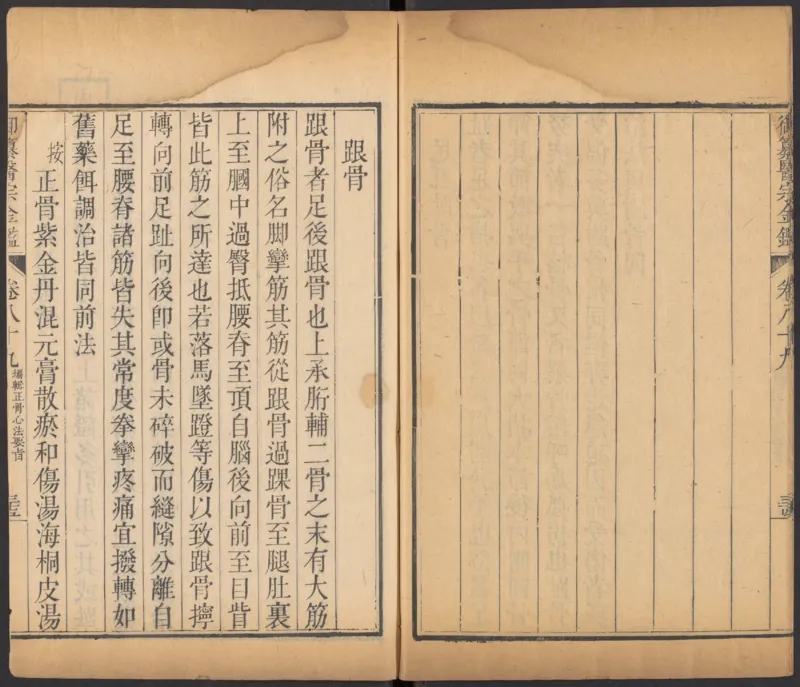 御纂醫宗金鑑 卷八十九
跟骨
跟骨者足後跟骨也上承胻輔二骨之末有大筋
附之俗名脚攣筋其筋從跟骨過踝骨至腿肚裏
上至膕中過臀抵腰脊至頂自腦後向前至目眥
皆此筋之所達也若落馬墜蹬等傷以致跟骨擰
轉向前足趾向後卽或骨未碎破而縫隙分離自
足至腰脊諸筋皆失其常度拳攣疼痛宜撥轉如
舊藥餌調治皆同前法
按正骨紫金丹混元膏散瘀和傷湯海桐皮湯
御纂醫宗金鑑 卷八十九 編輯正骨心法要旨 三五